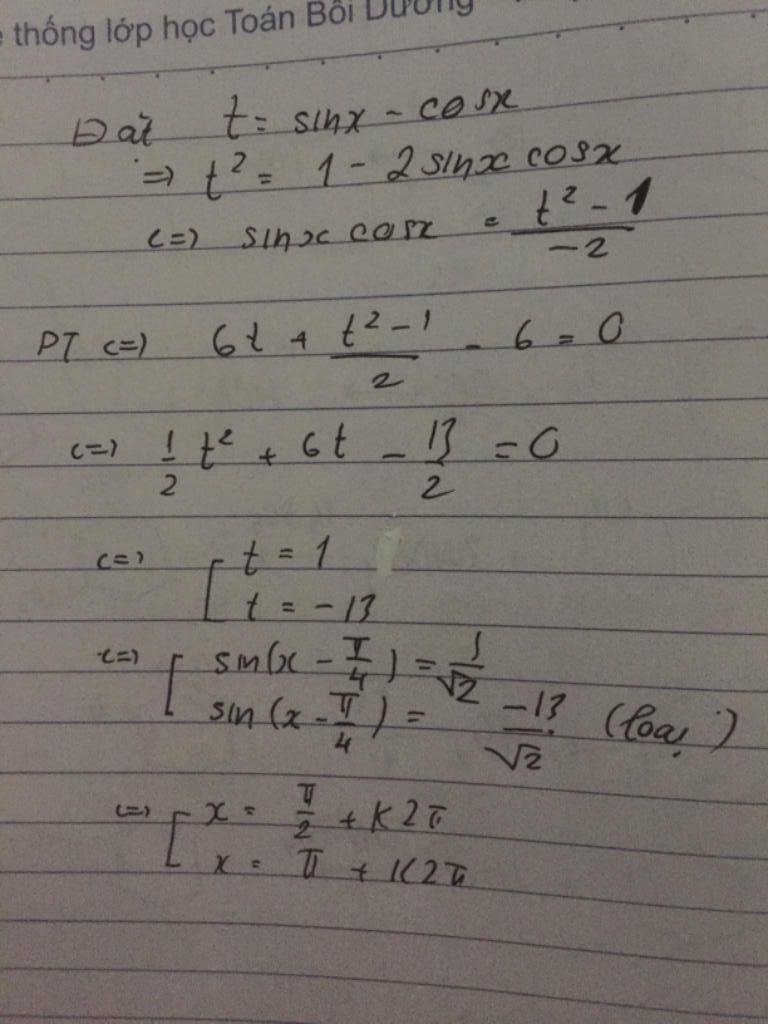 thống lớp học Toán Bồi Dưỡng
Đặt t = sinx - cosx
=> t² = 1 - 2sinx cosx
<=> sinx cosx = (t² - 1)/(-2)
PT <=> 6t + (t² - 1)/2 - 6 = 0
<=> 1/2 t² + 6t - 13/2 = 0
<=> [ t = 1
t = -13
<=> [ sin(x - π/4) = 1/√2
sin(x - π/4) = -13/√2 (loại)
<=> [ x = π/2 + K2π
x = π + K2π